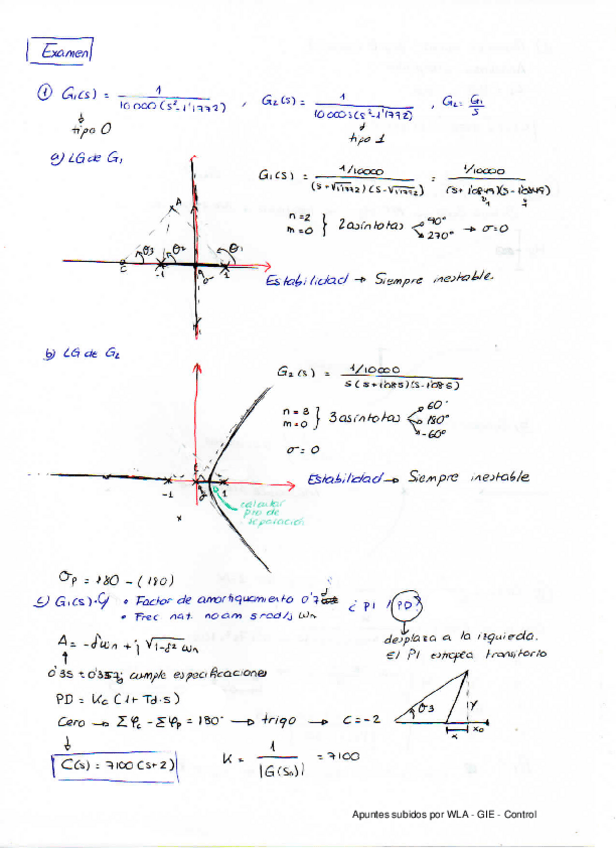 Examen
① G₁(s) = 1 / 10000(s²-1'1772) , G₂(s) = 1 / 10000s(s²-1'1772) , G₂ = G₁/s
tipo 0
tipo 1
a) LG de G₁
G₁(s) = 1/10000 / (s+√1'1772)(s-√1'1772) = 1/10000 / (s+1'0849)(s-1'0849)
n=2
m=0 } 2 asíntotas 90° 270° → σ=0
A
θ3 θ2 θ1
C -1 σ 1
Estabilidad → Siempre inestable.
b) LG de G₂
G₂(s) = 1/10000 / s(s+1'085)(s-1'085)
n=3
m=0 } 3 asíntotas 60° 180° -60°
σ=0
-1 σ 1
Estabilidad → Siempre inestable
calcular
pto de
separación
σp = 180 - (180)
c) G₁(s)· • Factor de amortiguamiento 0'7 ¿PI / PD?
• Frec nat. no am 5 rad/s ωn
A = -δωn + j √1-δ² ωn
desplaza a la izquierda.
El PI estropea transitorio
cumple especificaciones
PD = Kc (1+Td·s)
θ3 Y
x x0
Cero → Σφc - Σφp = 180° → trigo → C=-2
C(s) = 7100(s+2)
K = 1 / |G(s₀)| = 7100
Apuntes subidos por WLA - GIE - Control